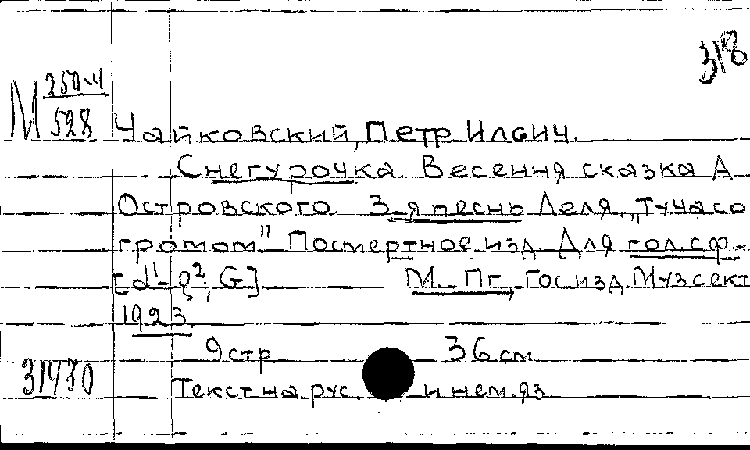 318
М 250-4
528
Чайковский, Петр Ильич.
Снегурочка. Весенняя сказка А.
Островского. 3-я песнь Леля. „Туча со
громом" Посмертное изд. Для гол. с ф.-
[d¹-g², G] М.-Пг., Госизд. Музсект
1923.
9 стр 36 см
31470
Текст на рус. и нем. яз.